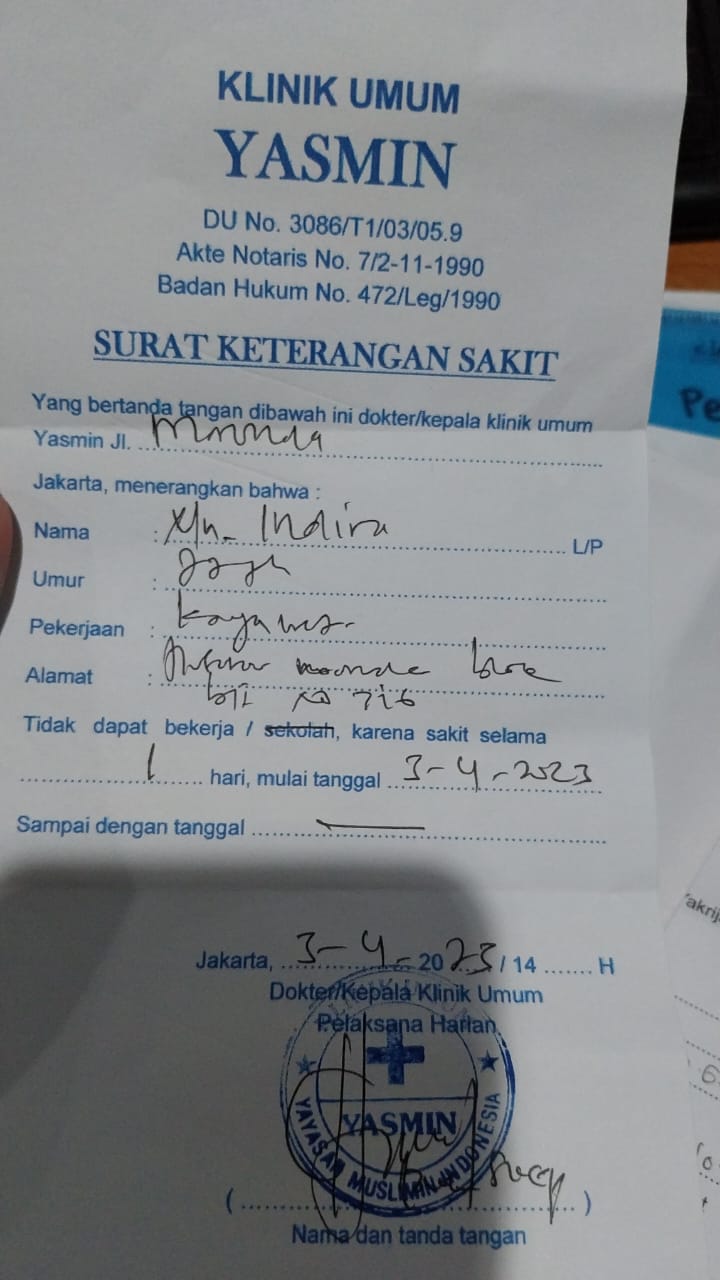 KLINIK UMUM
YASMIN
DU No. 3086/T1/03/05.9
Akte Notaris No. 7/2-11-1990
Badan Hukum No. 472/Leg/1990
SURAT KETERANGAN SAKIT
Yang bertanda tangan dibawah ini dokter/kepala klinik umum
Yasmin Jl. ....................
Jakarta, menerangkan bahwa :
Nama : Indira L/P
Umur :
Pekerjaan :
Alamat :
Tidak dapat bekerja / sekolah, karena sakit selama
1 hari, mulai tanggal 3-4-2023
Sampai dengan tanggal —
Jakarta, 3-4-2023 / 14 ....... H
Dokter/Kepala Klinik Umum
Pelaksana Harian
YASMIN
YAYASAN MUSLIMIN INDONESIA
(....................)
Nama dan tanda tangan
Pe